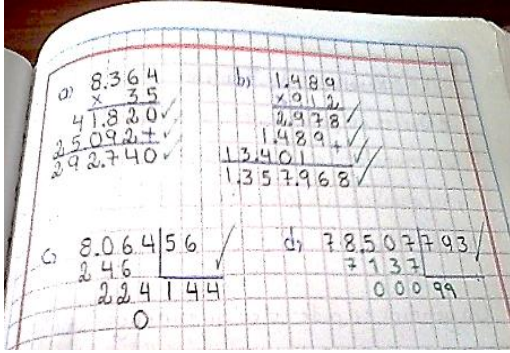 a) 8.364
x 35
41.820
25.092+
292.740
b) 1.489
x 912
2.978
1.489+
13.401
1.357.968
c) 8.064|56
246
224 144
0
d) 78.507|793
7137
000 99